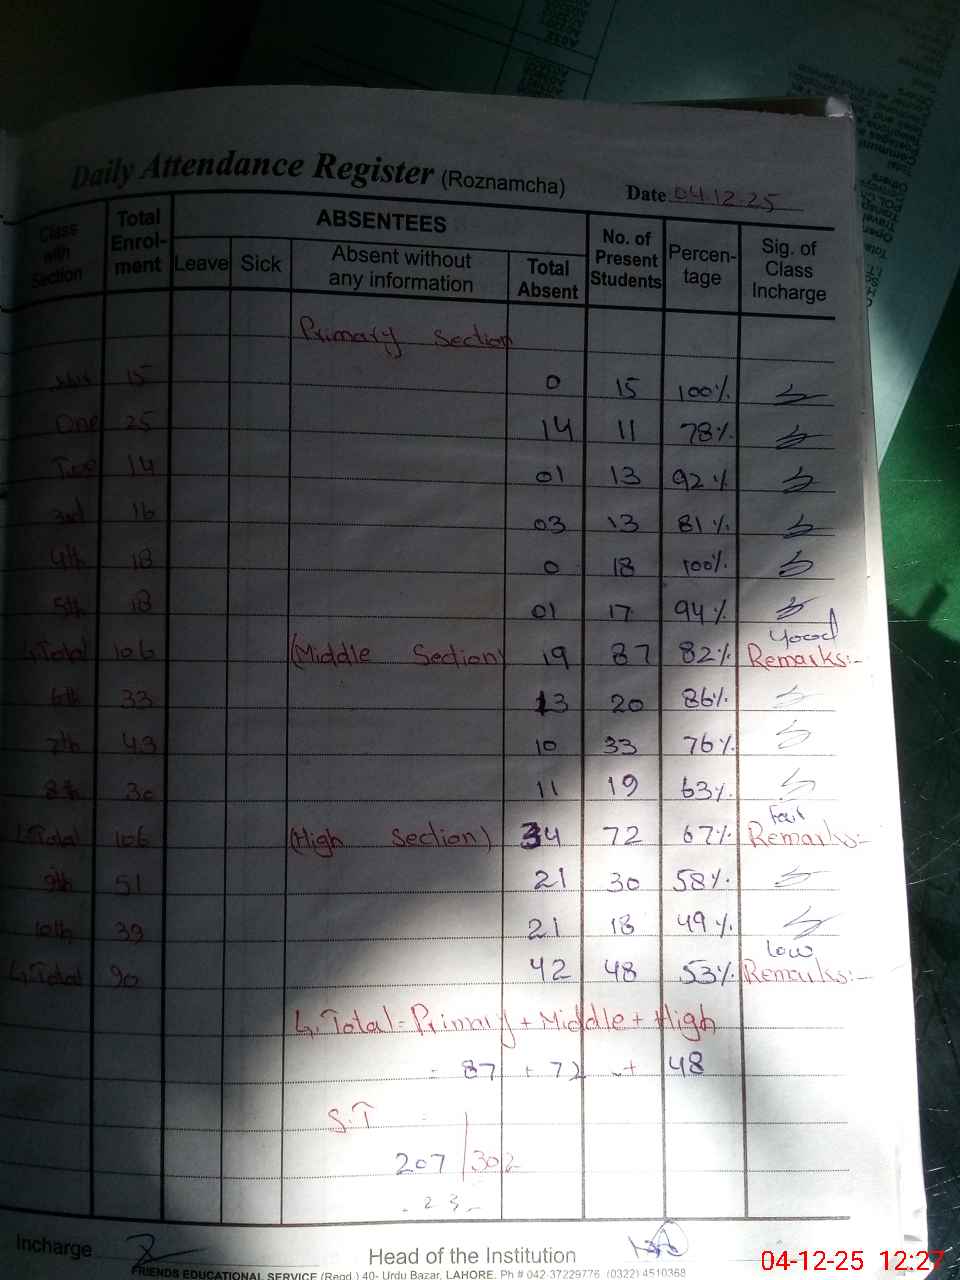 Daily Attendance Register (Roznamcha)
Date 04.12.25
Class with Section | Total Enrol-ment | ABSENTEES | No. of Present Students | Percen-tage | Sig. of Class Incharge
Leave | Sick | Absent without any information | Total Absent
Primary Section
15 0 15 100%
One 25 14 11 78%
Two 14 01 13 92%
3rd 16 03 13 81%
4th 18 0 18 100%
5th 18 01 17 94%
G.Total 106 (Middle Section) 19 87 82% Good Remarks:-
6th 33 13 20 86%
7th 43 10 33 76%
8th 30 11 19 63%
G.Total 106 (High Section) 34 72 67% Fair Remarks:-
9th 51 21 30 58%
10th 39 21 18 49%
G.Total 90 42 48 53% Low Remarks:-
G.Total = Primary + Middle + High
= 87 + 72 + 48
S.T
207/302
Incharge
Head of the Institution
FRIENDS EDUCATIONAL SERVICE (Regd.) 40- Urdu Bazar, LAHORE. Ph # 042-37229776, (0322) 4510368
04-12-25 12:27